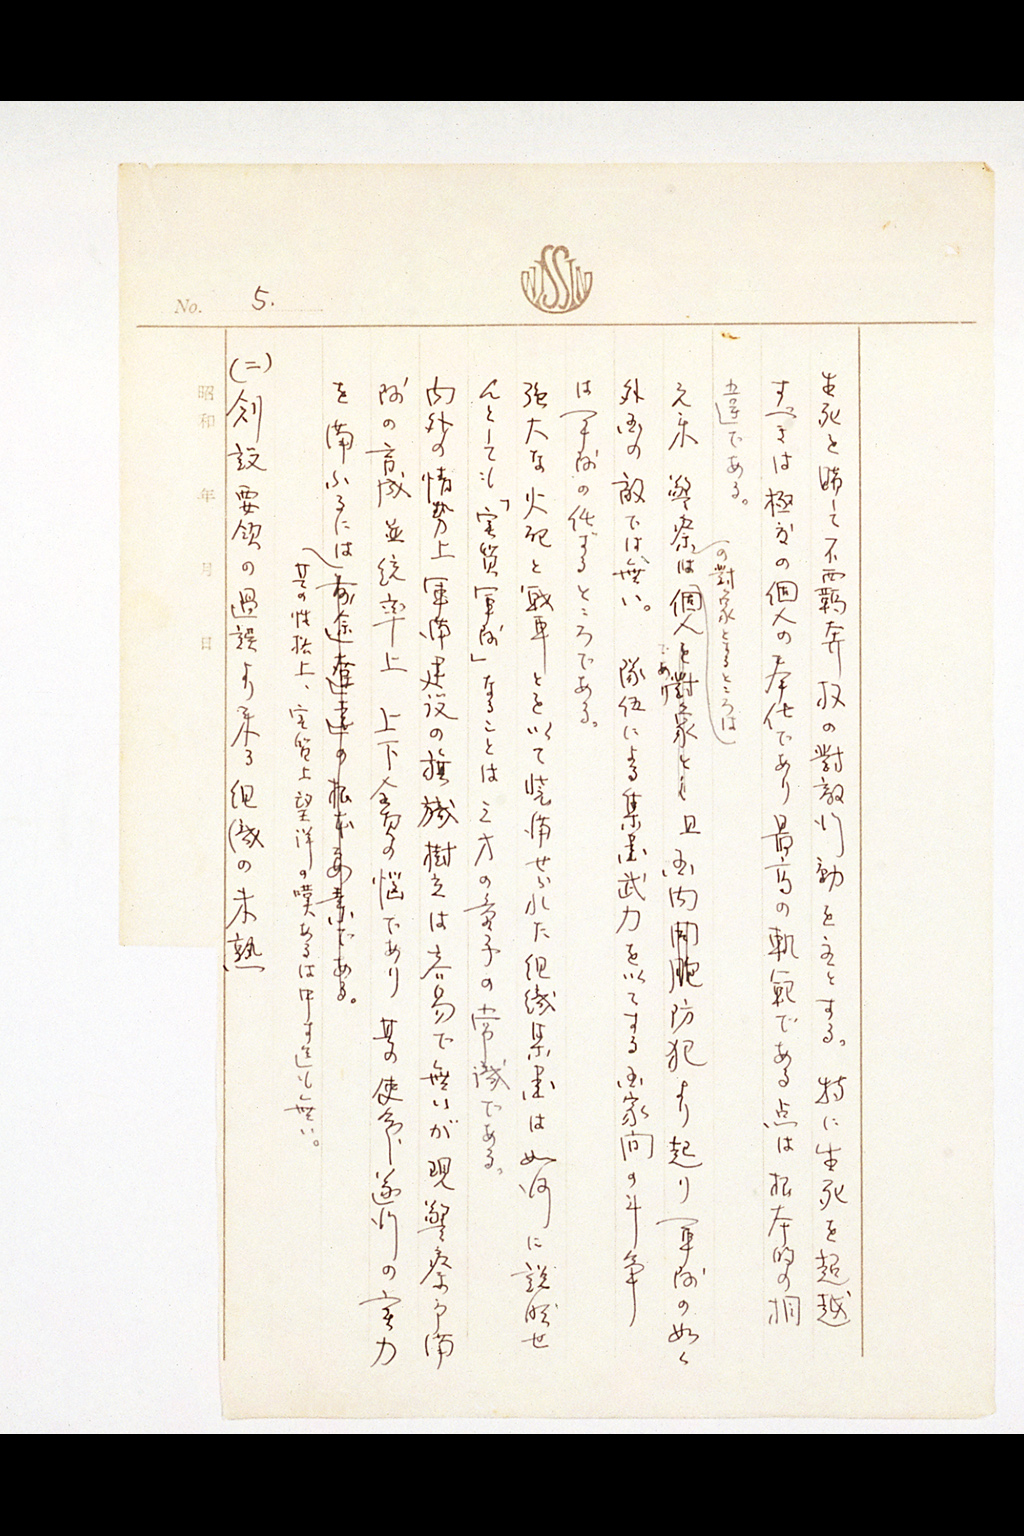 NISSIN
No. 5.
生死を賭して不羈奔放の對敵行動を主とする。特に生死を超越
すべきは極度の個人の奉仕であり最高の軌範である点は根本的の相
違である。
元来 警察は個人を對象とし且国内同胞防犯より起り軍隊の如く
の對象とするところは
であり
外国の敵では無い。 隊伍による集団武力を以てする国家間の斗争
は軍隊の任ずるところである。
強大な火砲と戦車とを以て装備せられた組織集団は如何に説明せ
んとしても「実質軍隊」なることは三才の童子の常識である。
内外の情勢上軍備建設の旗幟樹立は容易で無いが現警察予備
隊の育成並統率上 上下全員の悩であり 其の使命遂行の実力
を備ふるには前途遼遠の根本要素である。
其の性格上、実質上望洋の嘆あるは申す迄も無い。
(二)創設要領の過誤より来る組織の未熟
昭和 年 月 日